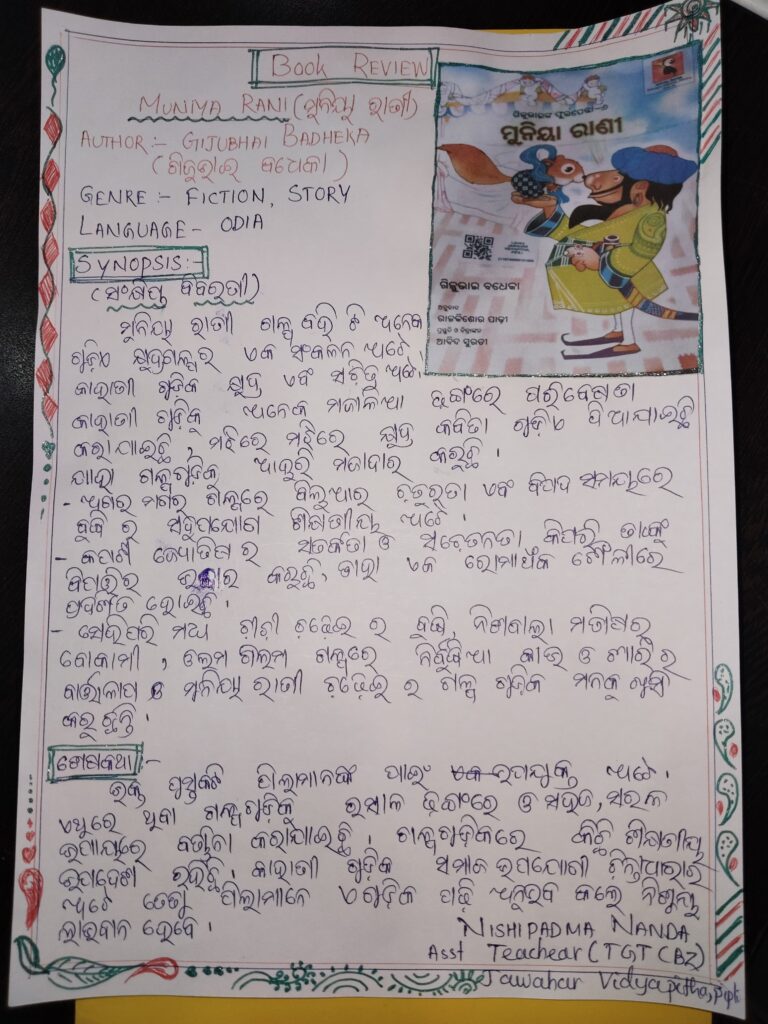 BOOK REVIEW
MUNIYA RANI (ମୁନିୟା ରାଣୀ)
AUTHOR:- GIJUBHAI BADHEKA
(ଗିଜୁଭାଇ ବଧେକା)
GENRE:- FICTION, STORY
LANGUAGE- ODIA
ଗିଜୁଭାଇଙ୍କ
ମୁନିୟା ରାଣୀ
ଗିଜୁଭାଇ ବଧେକା
ଅନୁବାଦ
ରାଜକିଶୋର ପାଢ଼ୀ
ପ୍ରସ୍ତୁତି ଓ ଚିତ୍ରାଙ୍କନ
ଆବିଦ ସୁରତୀ
SYNOPSIS:-
(ସଂକ୍ଷିପ୍ତ ବିବରଣୀ)
ମୁନିୟା ରାଣୀ ଗଳ୍ପ ବହି ଟି ଅନେକ
ଗୁଡ଼ିଏ କ୍ଷୁଦ୍ରଗଳ୍ପର ଏକ ସଂକଳନ ଅଟେ
କାହାଣୀ ଗୁଡ଼ିକ କ୍ଷୁଦ୍ର ଏବଂ ସଚିତ୍ର ଅଟେ।
କାହାଣୀ ଗୁଡ଼ିକୁ ଅନେକ ମଜାଳିଆ ଢଙ୍ଗରେ ପରିବେଷଣ
କରାଯାଇଛି, ମଝିରେ ମଝିରେ କ୍ଷୁଦ୍ର କବିତା ଗୁଡ଼ିଏ ଦିଆଯାଇଛି
ଯାହା ଗଳ୍ପଗୁଡ଼ିକ ଆହୁରି ମଜାଦାର କରୁଛି ।
- ଅଗର ମଗର ଗଳ୍ପରେ ବିଲୁଆର ଚତୁରତା ଏବଂ ବିପଦ ସମୟରେ
ବୁଦ୍ଧି ର ସଦୁପଯୋଗ ଶିକ୍ଷଣୀୟ ଅଟେ ।
- ଜ୍ୟୋତିଷ ର ସତର୍କତା ଓ ସଚେତନତା କିପରି ତାଙ୍କୁ
ବିପତ୍ତିରୁ କରୁଛି, ତାହା ଏକ ରୋମାଞ୍ଚକ ଶୈଳୀରେ
ପ୍ରଦର୍ଶିତ ହୋଇଛି ।
- ସେହିପରି ମଧ୍ୟ ଚଢ଼େଇ ର ବୁଦ୍ଧି, ମଣିଷର
ବୋକାମୀ, ଗଳ୍ପରେ ନିର୍ବୁଦ୍ଧିଆ କାଉ ଓ ଶାରୀ ର
ବାର୍ତ୍ତାଳାପ ଓ ମୁନିୟା ରାଣୀ ଚଢ଼େଇ ର ଗଳ୍ପ ଗୁଡ଼ିକ ମନକୁ ଖୁସି
କରୁଛନ୍ତି ।
ଶେଷକଥା:-
ଉକ୍ତ ପୁସ୍ତକଟି ପିଲାମାନଙ୍କ ପାଇଁ ଉପଯୁକ୍ତ ଅଟେ ।
ଏଥିରେ ଥିବା ଗଳ୍ପଗୁଡ଼ିକୁ ରସାଳ ଢଙ୍ଗରେ ଓ ସହଜ, ସରଳ
ଉପାୟରେ ବର୍ଣ୍ଣନା କରାଯାଇଛି । ଗଳ୍ପଗୁଡ଼ିକରେ କିଛି ଶିକ୍ଷଣୀୟ
ଉପଦେଶ ରହିଛି । କାହାଣୀ ଗୁଡ଼ିକ ସମାଜ ଉପଯୋଗୀ ଚିନ୍ତାଧାରାର
ଅଟେ ତେଣୁ ପିଲାମାନେ ଏଗୁଡ଼ିକ ପଢ଼ି ଅନୁଭବ କଲେ ନିଶ୍ଚୟ
ଲାଭବାନ ହେବେ ।
NISHIPADMA NANDA
Asst Teachear (TGT CBZ)
Jawahar Vidyapitha, Pipli